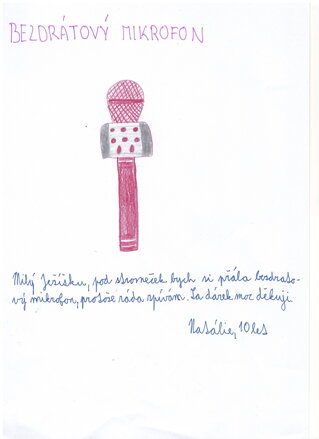 BEZDRÁTOVÝ MIKROFON
Milý Ježíšku, pod stromeček bych si přála bezdráto-
vý mikrofon, protože ráda zpívám. Za dárek moc děkuji.
Natálie, 10 let